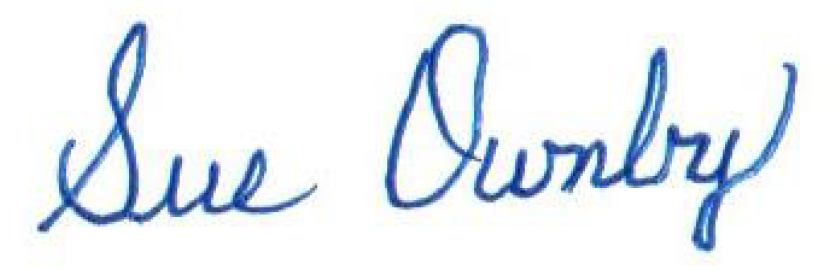 Sue Ownby